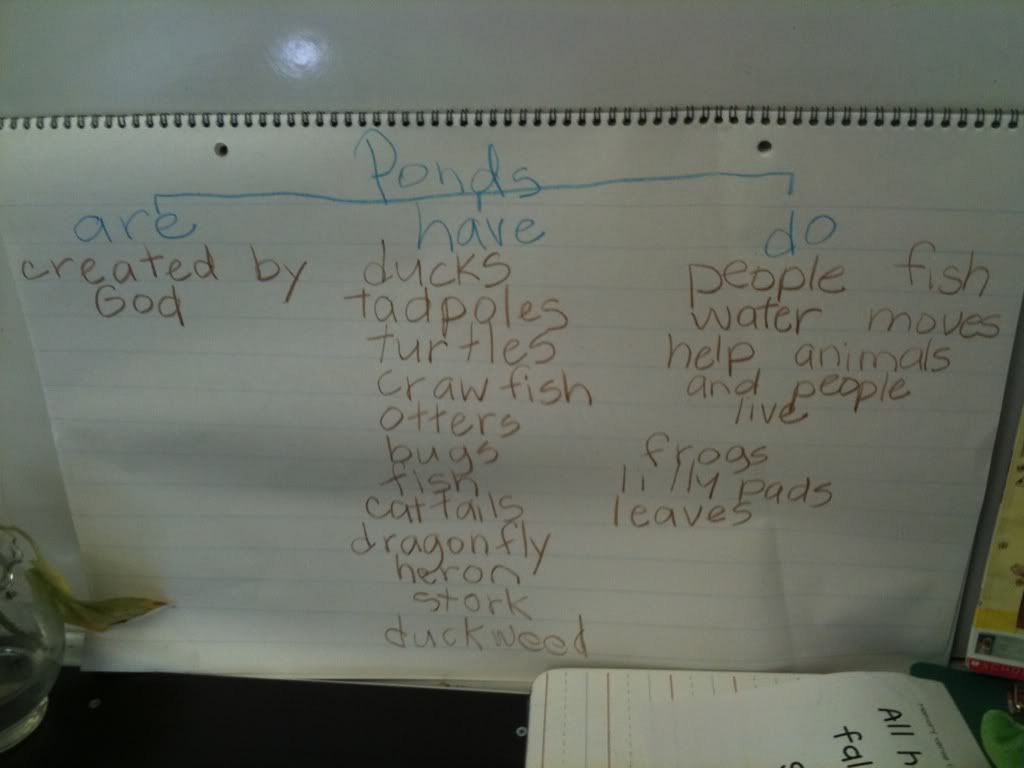 Ponds
are
created by
God
have
ducks
tadpoles
turtles
crawfish
otters
bugs
fish
cattails
dragonfly
heron
stork
duckweed
do
people fish
water moves
help animals
and people
live
frogs
lilly pads
leaves
All h
fal